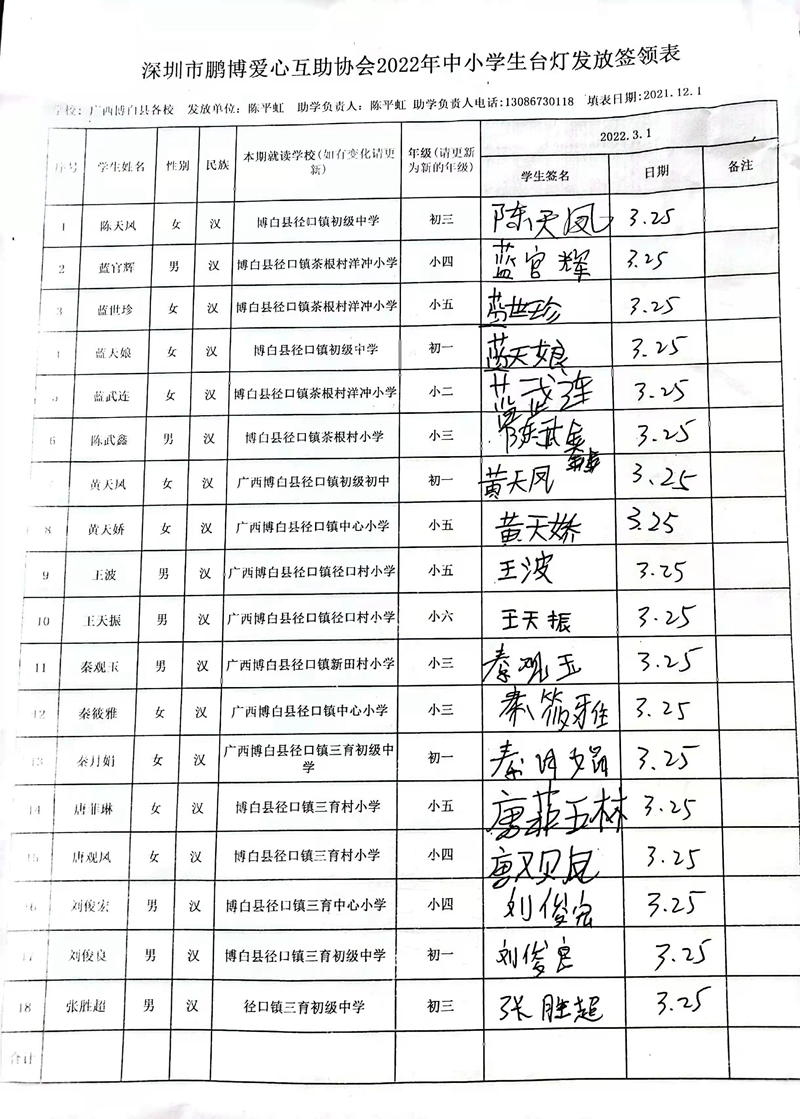 深圳市鹏博爱心互助协会2022年中小学生台灯发放签领表
学校：广西博白县各校 发放单位：陈平虹 助学负责人：陈平虹 助学负责人电话:13086730118 填表日期:2021.12.1
序号 学生姓名 性别 民族 本期就读学校(如有变化请更新) 年级(请更新为新的年级) 2022.3.1 学生签名 日期 备注
1 陈天凤 女 汉 博白县径口镇初级中学 初三 陈天凤 3.25
2 蓝官辉 男 汉 博白县径口镇茶根村洋冲小学 小四 蓝官辉 3.25
3 蓝世珍 女 汉 博白县径口镇茶根村洋冲小学 小五 蓝世珍 3.25
4 蓝天娘 女 汉 博白县径口镇初级中学 初一 蓝天娘 3.25
5 蓝武连 女 汉 博白县径口镇茶根村洋冲小学 小二 蓝武连 3.25
6 陈武鑫 男 汉 博白县径口镇茶根村小学 小三 陈武鑫 3.25
黄天凤 女 汉 广西博白县径口镇初级初中 初一 黄天凤 3.25
8 黄天娇 女 汉 广西博白县径口镇中心小学 小五 黄天娇 3.25
9 王波 男 汉 广西博白县径口镇径口村小学 小五 王波 3.25
10 王天振 男 汉 广西博白县径口镇径口村小学 小六 王天振 3.25
11 秦观玉 男 汉 广西博白县径口镇新田村小学 小三 秦观玉 3.25
12 秦筱雅 女 汉 广西博白县径口镇中心小学 小三 秦筱雅 3.25
13 秦月娟 女 汉 广西博白县径口镇三育初级中学 初一 秦月娟 3.25
14 唐菲琳 女 汉 博白县径口镇三育村小学 小五 唐菲琳 3.25
15 唐观凤 女 汉 博白县径口镇三育村小学 小四 唐观凤 3.25
16 刘俊宏 男 汉 博白县径口镇三育中心小学 小四 刘俊宏 3.25
17 刘俊良 男 汉 博白县径口镇三育初级中学 初一 刘俊良 3.25
18 张胜超 男 汉 径口镇三育初级中学 初三 张胜超 3.25
合计